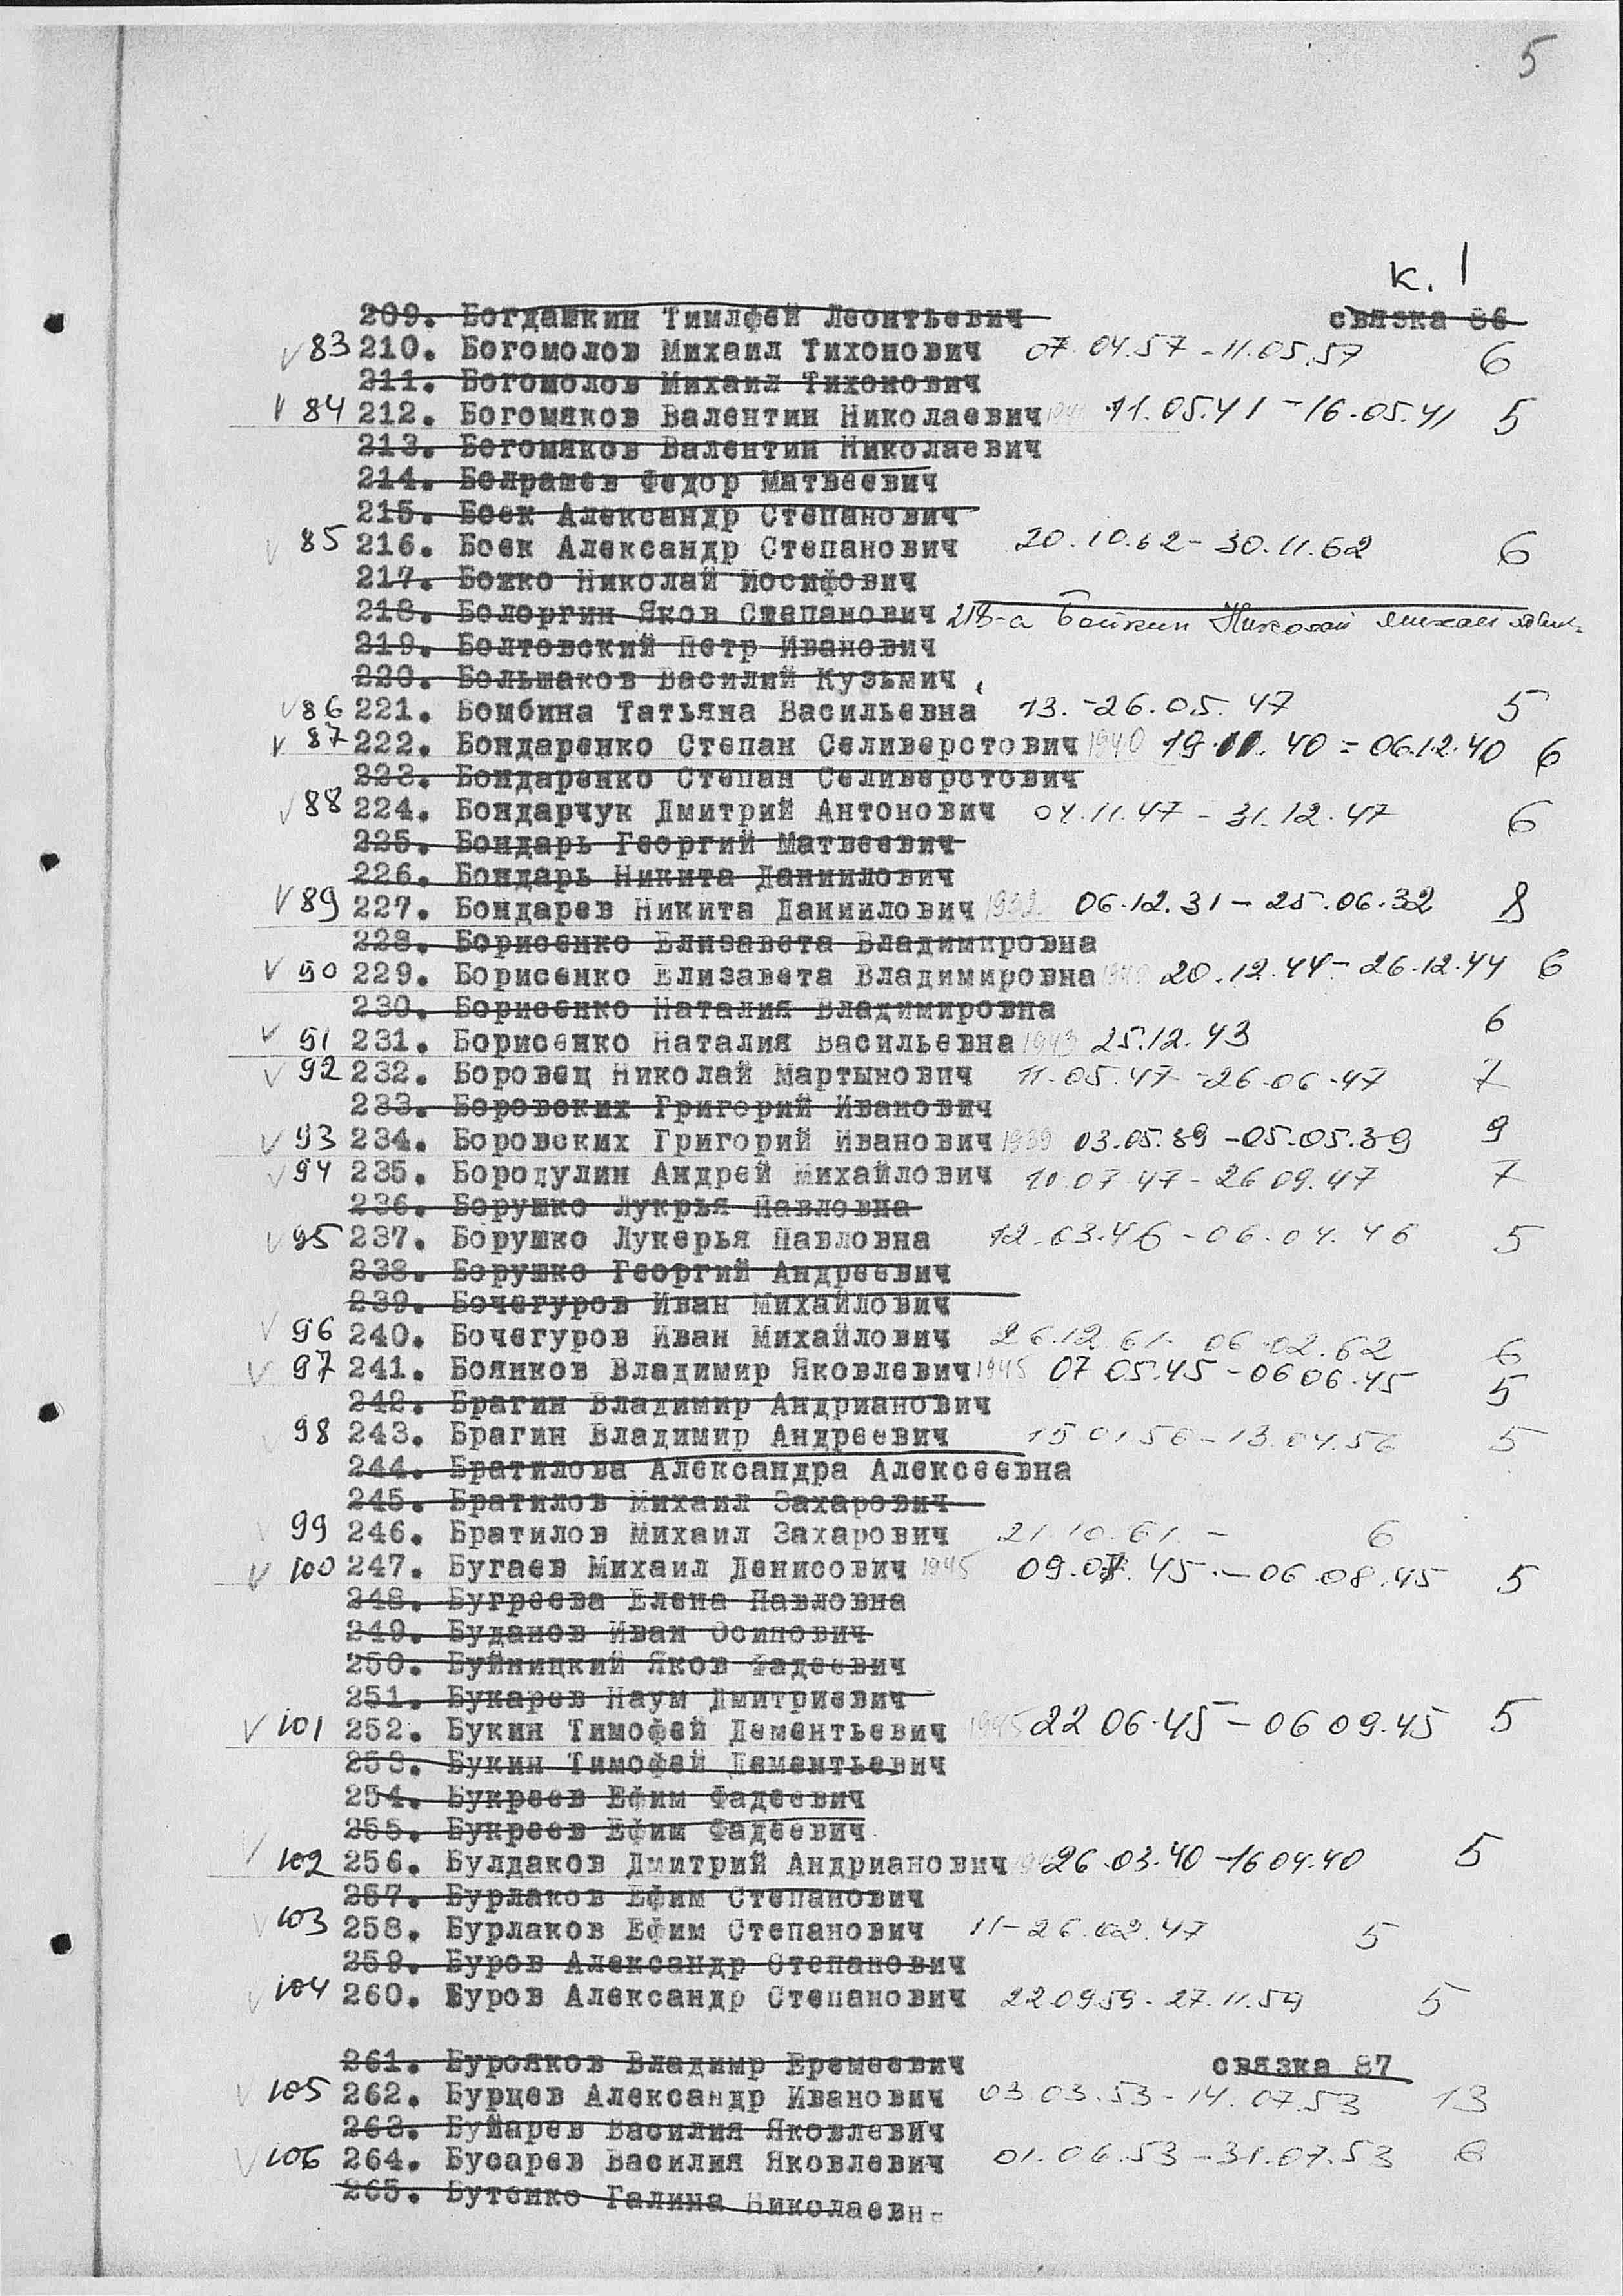 5
к. 1
209. Богдашкин Тимлфей Леонтьевич связка 86
V 83 210. Богомолов Михаил Тихонович 07.04.57 - 11.05.57 6
211. Богомолов Михаил Тихонович
V 84 212. Богомяков Валентин Николаевич 1941 11.05.41 - 16.05.41 5
213. Богомяков Валентин Николаевич
214. Федор Матвеевич
215. Боек Александр Степанович
V 85 216. Боек Александр Степанович 20.10.62 - 30.11.62 6
217. Божко Николай Иосифович
218. Белоргин Яков Степанович 218-а Байкин Николай
219. Болтовский Петр Иванович
220. Большаков Василий Кузьмич
V 86 221. Бомбина Татьяна Васильевна 13. - 26.05.47 5
V 87 222. Бондаренко Степан Селиверстович 1940 19.11.40 = 06.12.40 6
223. Бондаренко Степан Селиверстович
V 88 224. Бондарчук Дмитрий Антонович 04.11.47 - 31.12.47 6
225. Бондарь Георгий Матвеевич
226. Бондарь Никита Даниилович
V 89 227. Бондарев Никита Даниилович 1932 06.12.31 - 25.06.32 8
228. Борисенко Елизавета Владимировна
V 90 229. Борисенко Елизавета Владимировна 20.12.44 - 26.12.44 6
230. Борисенко Наталия Владимировна
V 91 231. Борисенко Наталия Васильевна 1943 25.12.43 6
V 92 232. Боровец Николай Мартынович 11.05.47 - 26.06.47 7
233. Боровских Григорий Иванович
V 93 234. Боровских Григорий Иванович 1939 03.05.39 - 05.05.39 9
V 94 235. Бородулин Андрей Михайлович 10.07.47 - 26.09.47 7
236. Борушко Лукрья Павловна
V 95 237. Борушко Лукерья Павловна 12.03.46 - 06.04.46 5
238. Борушко Георгий Андреевич
239. Бочегуров Иван Михайлович
V 96 240. Бочегуров Иван Михайлович 26.12.61 - 06.02.62 6
V 97 241. Бояиков Владимир Яковлевич 1945 07 05.45 - 06 06.45 5
242. Брагин Владимир Андрианович
V 98 243. Брагин Владимир Андреевич 15.01.56 - 13.04.56 5
244. Братилова Александра Алексеевна
245. Братилов Михаил Захарович
V 99 246. Братилов Михаил Захарович 21.10.61. - 6
V 100 247. Бугаев Михаил Денисович 1945 09.07.45. - 06.08.45 5
248. Бугреева Елена Павловна
249. Буданов Иван Осипович
250. Буйницкий Яков Фадеевич
251. Букарев Наум Дмитриевич
V 101 252. Букин Тимофей Дементьевич 1945 22 06.45 - 06 09.45 5
253. Букин Тимофей Дементьевич
254. Букреев Ефим Фадеевич
255. Букреев Ефим Фадеевич
V 102 256. Булдаков Дмитрий Андрианович 26.03.40 - 16 04.40 5
257. Бурлаков Ефим Степанович
V 103 258. Бурлаков Ефим Степанович 11 - 26.02.47 5
259. Буров Александр Степанович
V 104 260. Буров Александр Степанович 22.09.59 - 27.11.59 5
261. Бурояков Владимр Еремеевич связка 87
V 105 262. Бурцев Александр Иванович 03.03.53 - 14.07.53 13
263. Василия Яковлевич
V 106 264. Бусарев Василия Яковлевич 01.06.53 - 31.07.53 6
265. Бутенко Галина Николаевн